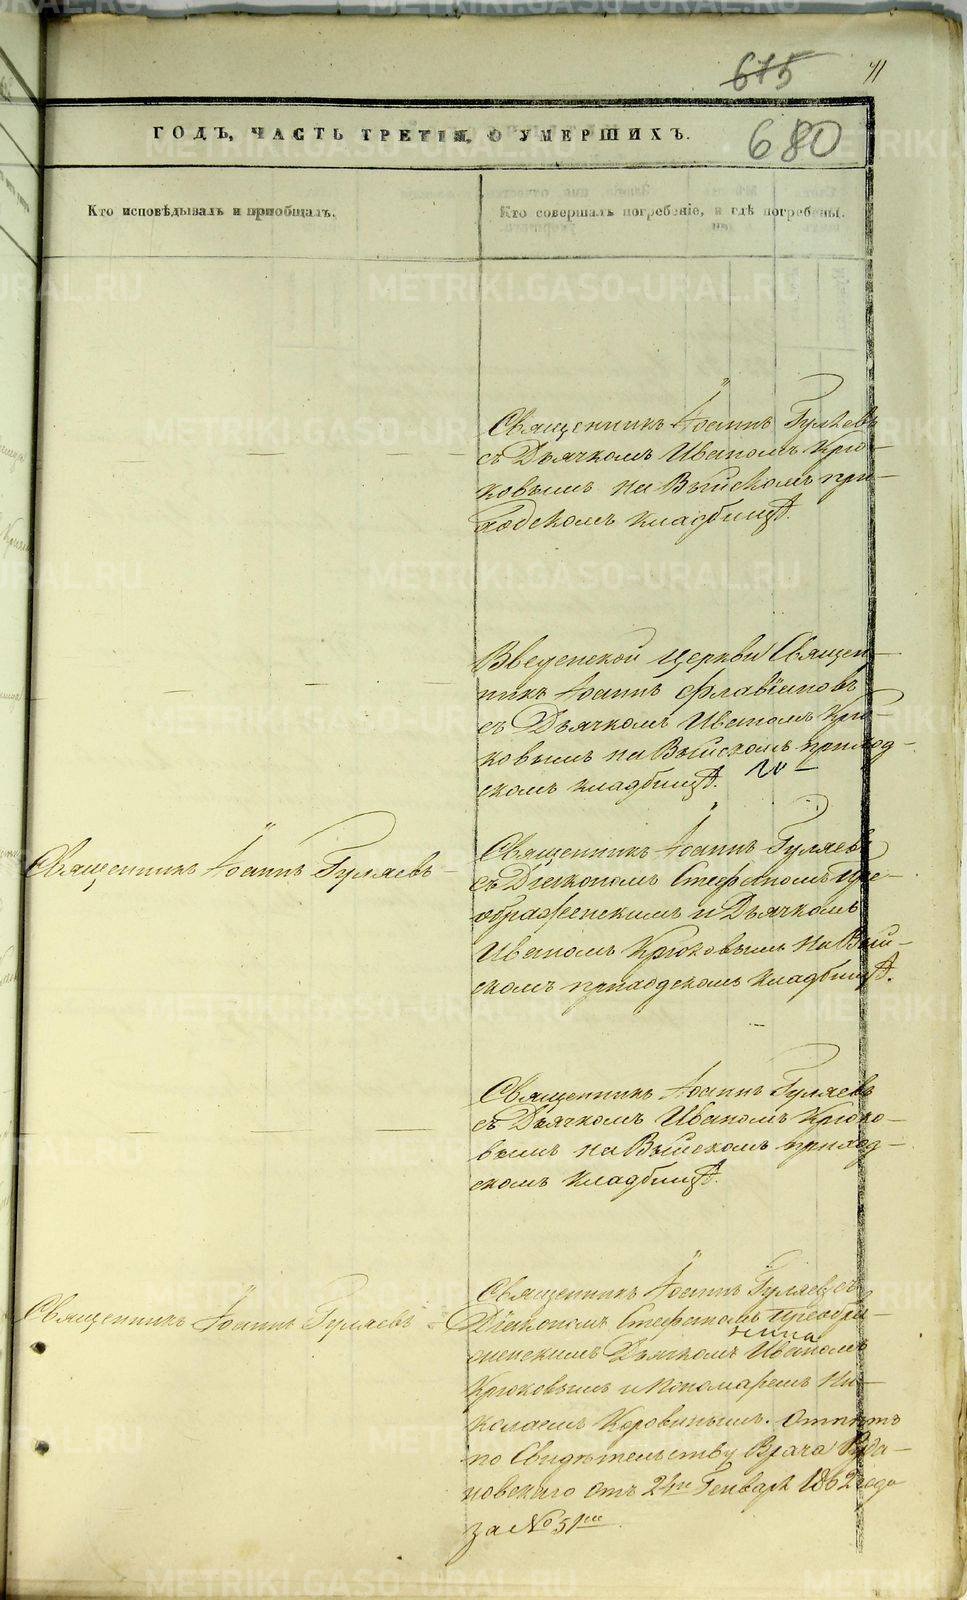 675
71
ГОДЪ, ЧАСТЬ ТРЕТІЯ, О УМЕРШИХЪ.
680
Кто исповѣдывалъ и пріобщалъ.
Кто совершалъ погребеніе, и гдѣ погребены.
Священникъ Іоаннъ Гуляевъ
съ Дьячкомъ Иваномъ Крю-
ковымъ на Выйскомъ при-
ходскомъ кладбищѣ.
Введенской церкви Священ-
никъ Іоаннъ Флавіановъ
съ Дьячкомъ Иваномъ Крю-
ковымъ на Выйскомъ приход-
скомъ кладбищѣ.
Священникъ Іоаннъ Гуляевъ
Священникъ Іоаннъ Гуляевъ
съ Діакономъ Стефаномъ Пре-
ображенскимъ и Дьячкомъ
Иваномъ Крюковымъ на Вый-
скомъ приходскомъ кладбищѣ.
Священникъ Іоаннъ Гуляевъ
съ Дьячкомъ Иваномъ Крюко-
вымъ на Выйскомъ приход-
скомъ кладбищѣ.
Священникъ Іоаннъ Гуляевъ
Священникъ Іоаннъ Гуляевъ съ
Діакономъ Стефаномъ Преобра-
женскимъ Дьячкомъ Иваномъ
Крюковымъ и Пономаремъ Ни-
колаемъ Коровинымъ. Отпѣтъ
по Свидѣтельству Врача Руда-
новскаго отъ 24го Генваря 1862 года
за № 51мъ
METRIKI.GASO-URAL.RU